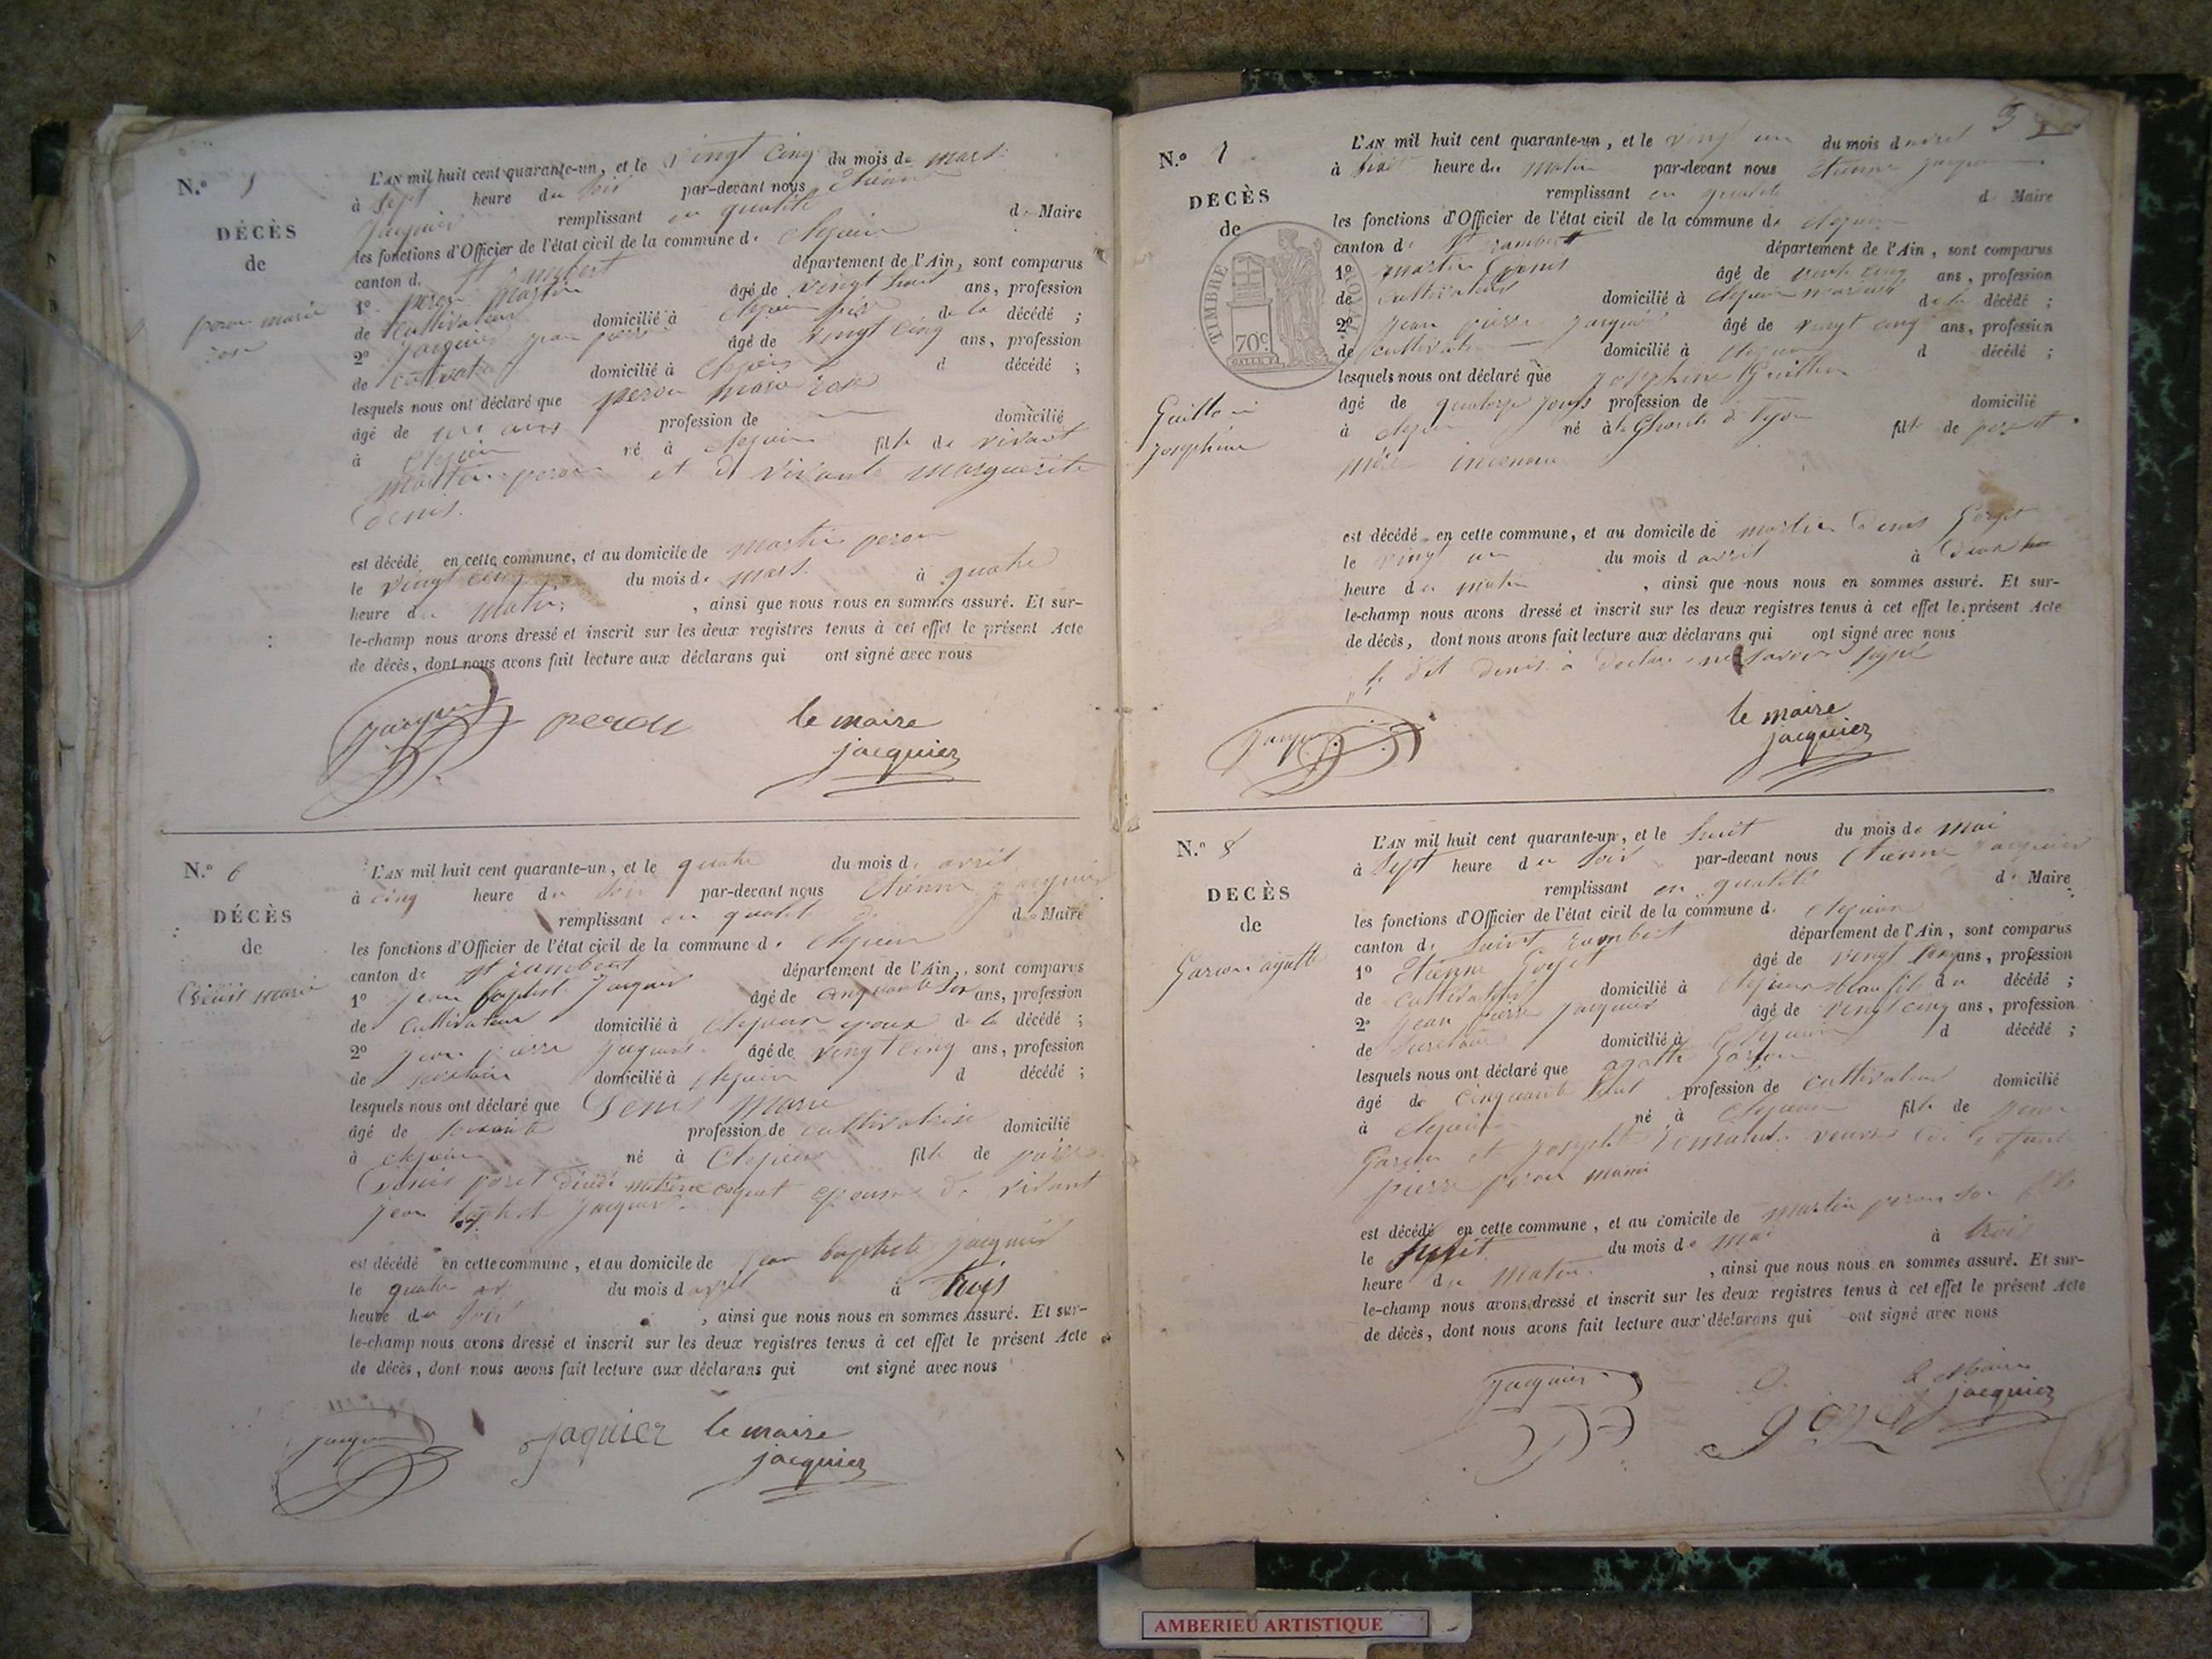 N.º 5
DÉCÈS
de
peron marie
rose
L'AN mil huit cent quarante-un, et le vingt cinq du mois de mars
à sept heure du soir par-devant nous Etienne
jacquier remplissant en qualité de Maire
les fonctions d'Officier de l'état civil de la commune de
canton de St rambert département de l'Ain, sont comparus
1º peron martin âgé de vingt huit ans, profession
de cultivateur domicilié à père de la décédé ;
2º jacquier jean pierre âgé de vingt cinq ans, profession
de domicilié à d décédé ;
lesquels nous ont déclaré que peron marie rose
âgé de ans profession de domicilié
à né à fille de vivant
martin peron et de vivante marguerite
denis.
est décédé en cette commune, et au domicile de martin peron
le vingt cinq du mois de mars à quatre
heure du matin, ainsi que nous nous en sommes assuré. Et sur-
le-champ nous avons dressé et inscrit sur les deux registres tenus à cet effet le présent Acte
de décès, dont nous avons fait lecture aux déclarans qui ont signé avec nous
jacquier peron le maire
jacquier
N.º 6
DÉCÈS
de
Denis marie
L'AN mil huit cent quarante-un, et le quatre du mois d avril
à cinq heure du soir par-devant nous Etienne jacquier
remplissant en qualité de Maire
les fonctions d'Officier de l'état civil de la commune de
canton de St rambert département de l'Ain, sont comparus
1º jean baptiste jacquier âgé de cinquante ans, profession
de cultivateur domicilié à époux de la décédé ;
2º jean pierre jacquier âgé de vingt cinq ans, profession
de domicilié à d décédé ;
lesquels nous ont déclaré que Denis marie
âgé de soixante profession de cultivatrice domicilié
à né à fille de
Denis coquet épouse de vivant
jean baptiste jacquier
est décédé en cette commune, et au domicile de jean baptiste jacquier
le quatre du mois d avril à trois
heure du soir, ainsi que nous nous en sommes assuré. Et sur-
le-champ nous avons dressé et inscrit sur les deux registres tenus à cet effet le présent Acte
de décès, dont nous avons fait lecture aux déclarans qui ont signé avec nous
jacquier jaquier le maire
jacquier
N.º 7
DECÈS
de
TIMBRE ROYAL
70c
Guillemi
Josephine
L'AN mil huit cent quarante-un, et le vingt un du mois d avril
à heure du matin par-devant nous Etienne jacquier
remplissant en qualité de Maire
les fonctions d'Officier de l'état civil de la commune de
canton de St rambert département de l'Ain, sont comparus
1º martin Denis âgé de cinq ans, profession
de cultivateur domicilié à de la décédé ;
2º jean pierre jacquier âgé de vingt cinq ans, profession
de cultivateur domicilié à d décédé ;
lesquels nous ont déclaré que Josephine
âgé de quatorze jours profession de domicilié
à né à la Charité de Lyon fille de père et
mère inconnu
est décédé en cette commune, et au domicile de martin Denis Goyet
le vingt un du mois d avril à deux
heure du matin, ainsi que nous nous en sommes assuré. Et sur-
le-champ nous avons dressé et inscrit sur les deux registres tenus à cet effet le présent Acte
de décès, dont nous avons fait lecture aux déclarans qui ont signé avec nous
le dit denis a déclaré ne savoir signé
le maire
jacquier
N.º 8
DECÈS
de
Garson agatte
L'AN mil huit cent quarante-un, et le huit du mois de mai
à sept heure du soir par-devant nous Etienne jacquier
remplissant en qualité de Maire
les fonctions d'Officier de l'état civil de la commune de
canton de Saint rambert département de l'Ain, sont comparus
1º Etienne Goyet âgé de vingt ans, profession
de cultivateur domicilié à beau fils du décédé ;
2º jean pierre jacquier âgé de vingt cinq ans, profession
de secretaire domicilié à d décédé ;
lesquels nous ont déclaré que agatte Garson
âgé de cinquante huit profession de domicilié
à né à fille de
Garson et joseph veuve de defunt
pierre peron
est décédé en cette commune, et au domicile de martin peron son fils
le huit du mois de mai à trois
heure du matin, ainsi que nous nous en sommes assuré. Et sur-
le-champ nous avons dressé et inscrit sur les deux registres tenus à cet effet le présent Acte
de décès, dont nous avons fait lecture aux déclarans qui ont signé avec nous
jacquier le Maire
jacquier
goyet
AMBERIEU ARTISTIQUE